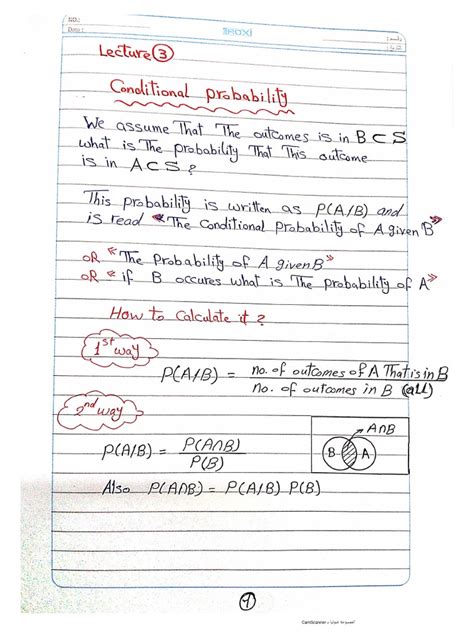 NO.:
Date :
Lecture ③
Conditional probability
We assume That The outcomes is in B ⊂ S
what is The probability That This outcome
is in A ⊂ S ?
This probability is written as P(A/B) and
is read «The Conditional Probability of A given B»
OR «The Probability of A given B»
OR « if B occures what is The probability of A»
How to Calculate it ?
1st way
P(A/B) = no. of outcomes of A That is in B
no. of outcomes in B (all)
2nd way
A∩B
P(A/B) = P(A∩B)
P(B)
B A
Also P(A∩B) = P(A/B) P(B)
CamScanner